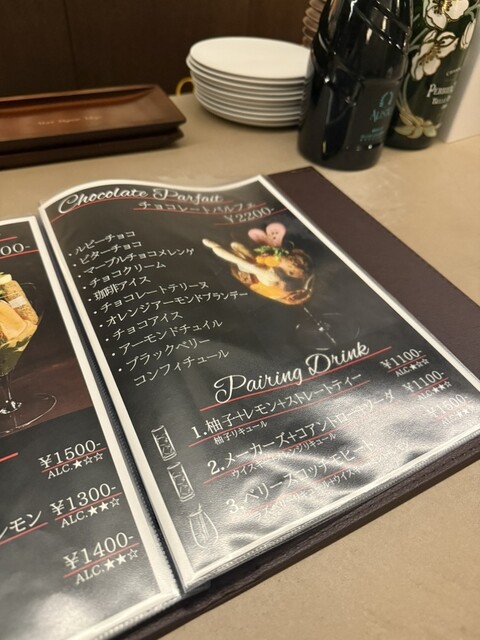 Chocolate Parfait
チョコレートパルフェ
¥2200-
・ルビーチョコ
・ビターチョコ
・マーブルチョコメレンゲ
・チョコクリーム
・珈琲アイス
・チョコレートテリーヌ
・オレンジアーモンドブランデー
・チョコアイス
・アーモンドチュイル
・ブラックベリー
コンフィチュール
Pairing Drink
1.柚子+レモン+ストレートティー ¥1100-
柚子リキュール ALC.★☆☆
2.メーカーズ+コアントロー ¥1100-
3.ベリーズ
00-
¥1500-
ALC.★☆☆
レモン ¥1300-
ALC.★★☆
¥1400-
ALC.★★☆